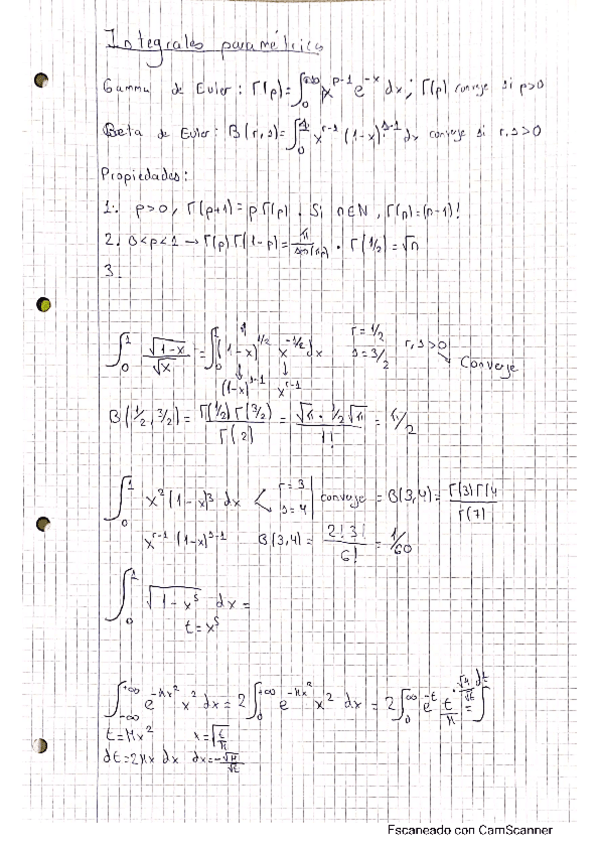 Integrales paramétricas
Gamma de Euler: Γ(p)=∫₀^{+∞} x^{p-1} e^{-x} dx; Γ(p) converge si p>0
Beta de Euler: B(r,s)=∫₀^1 x^{r-1} (1-x)^{s-1} dx converge si r,s>0
Propiedades:
1. p>0, Γ(p+1)=pΓ(p). Si n∈N, Γ(n)=(n-1)!
2. 0<p<1 → Γ(p)Γ(1-p)=π/sen(πp) · Γ(1/2)=√π
3.
∫₀^1 √(1-x)/√x = ∫₀^1 (1-x)^{1/2} x^{-1/2} dx r=1/2 s=3/2 | r,s>0 → Converge
↓ ↓
(1-x)^{s-1} x^{r-1}
B(1/2,3/2)= Γ(1/2)Γ(3/2)/Γ(2) = √π·1/2√π/1! = π/2
∫₀^1 x²(1-x)³ dx < r=3 s=4 | converge = B(3,4)= Γ(3)Γ(4/Γ(7)
x^{r-1} (1-x)^{s-1} B(3,4)= 2!3!/6! = 1/60
∫₀^1 √(1-x⁵) dx=
t=x⁵
∫_{-∞}^{+∞} e^{-μx²} x² dx = 2∫₀^{+∞} e^{-μx²} x² dx = 2∫₀^{+∞} e^{-t} t/μ · √μ/√t dt = ∫
t=μx² x=√(t/μ)
dt=2μx dx dx=√μ/√t
Escaneado con CamScanner